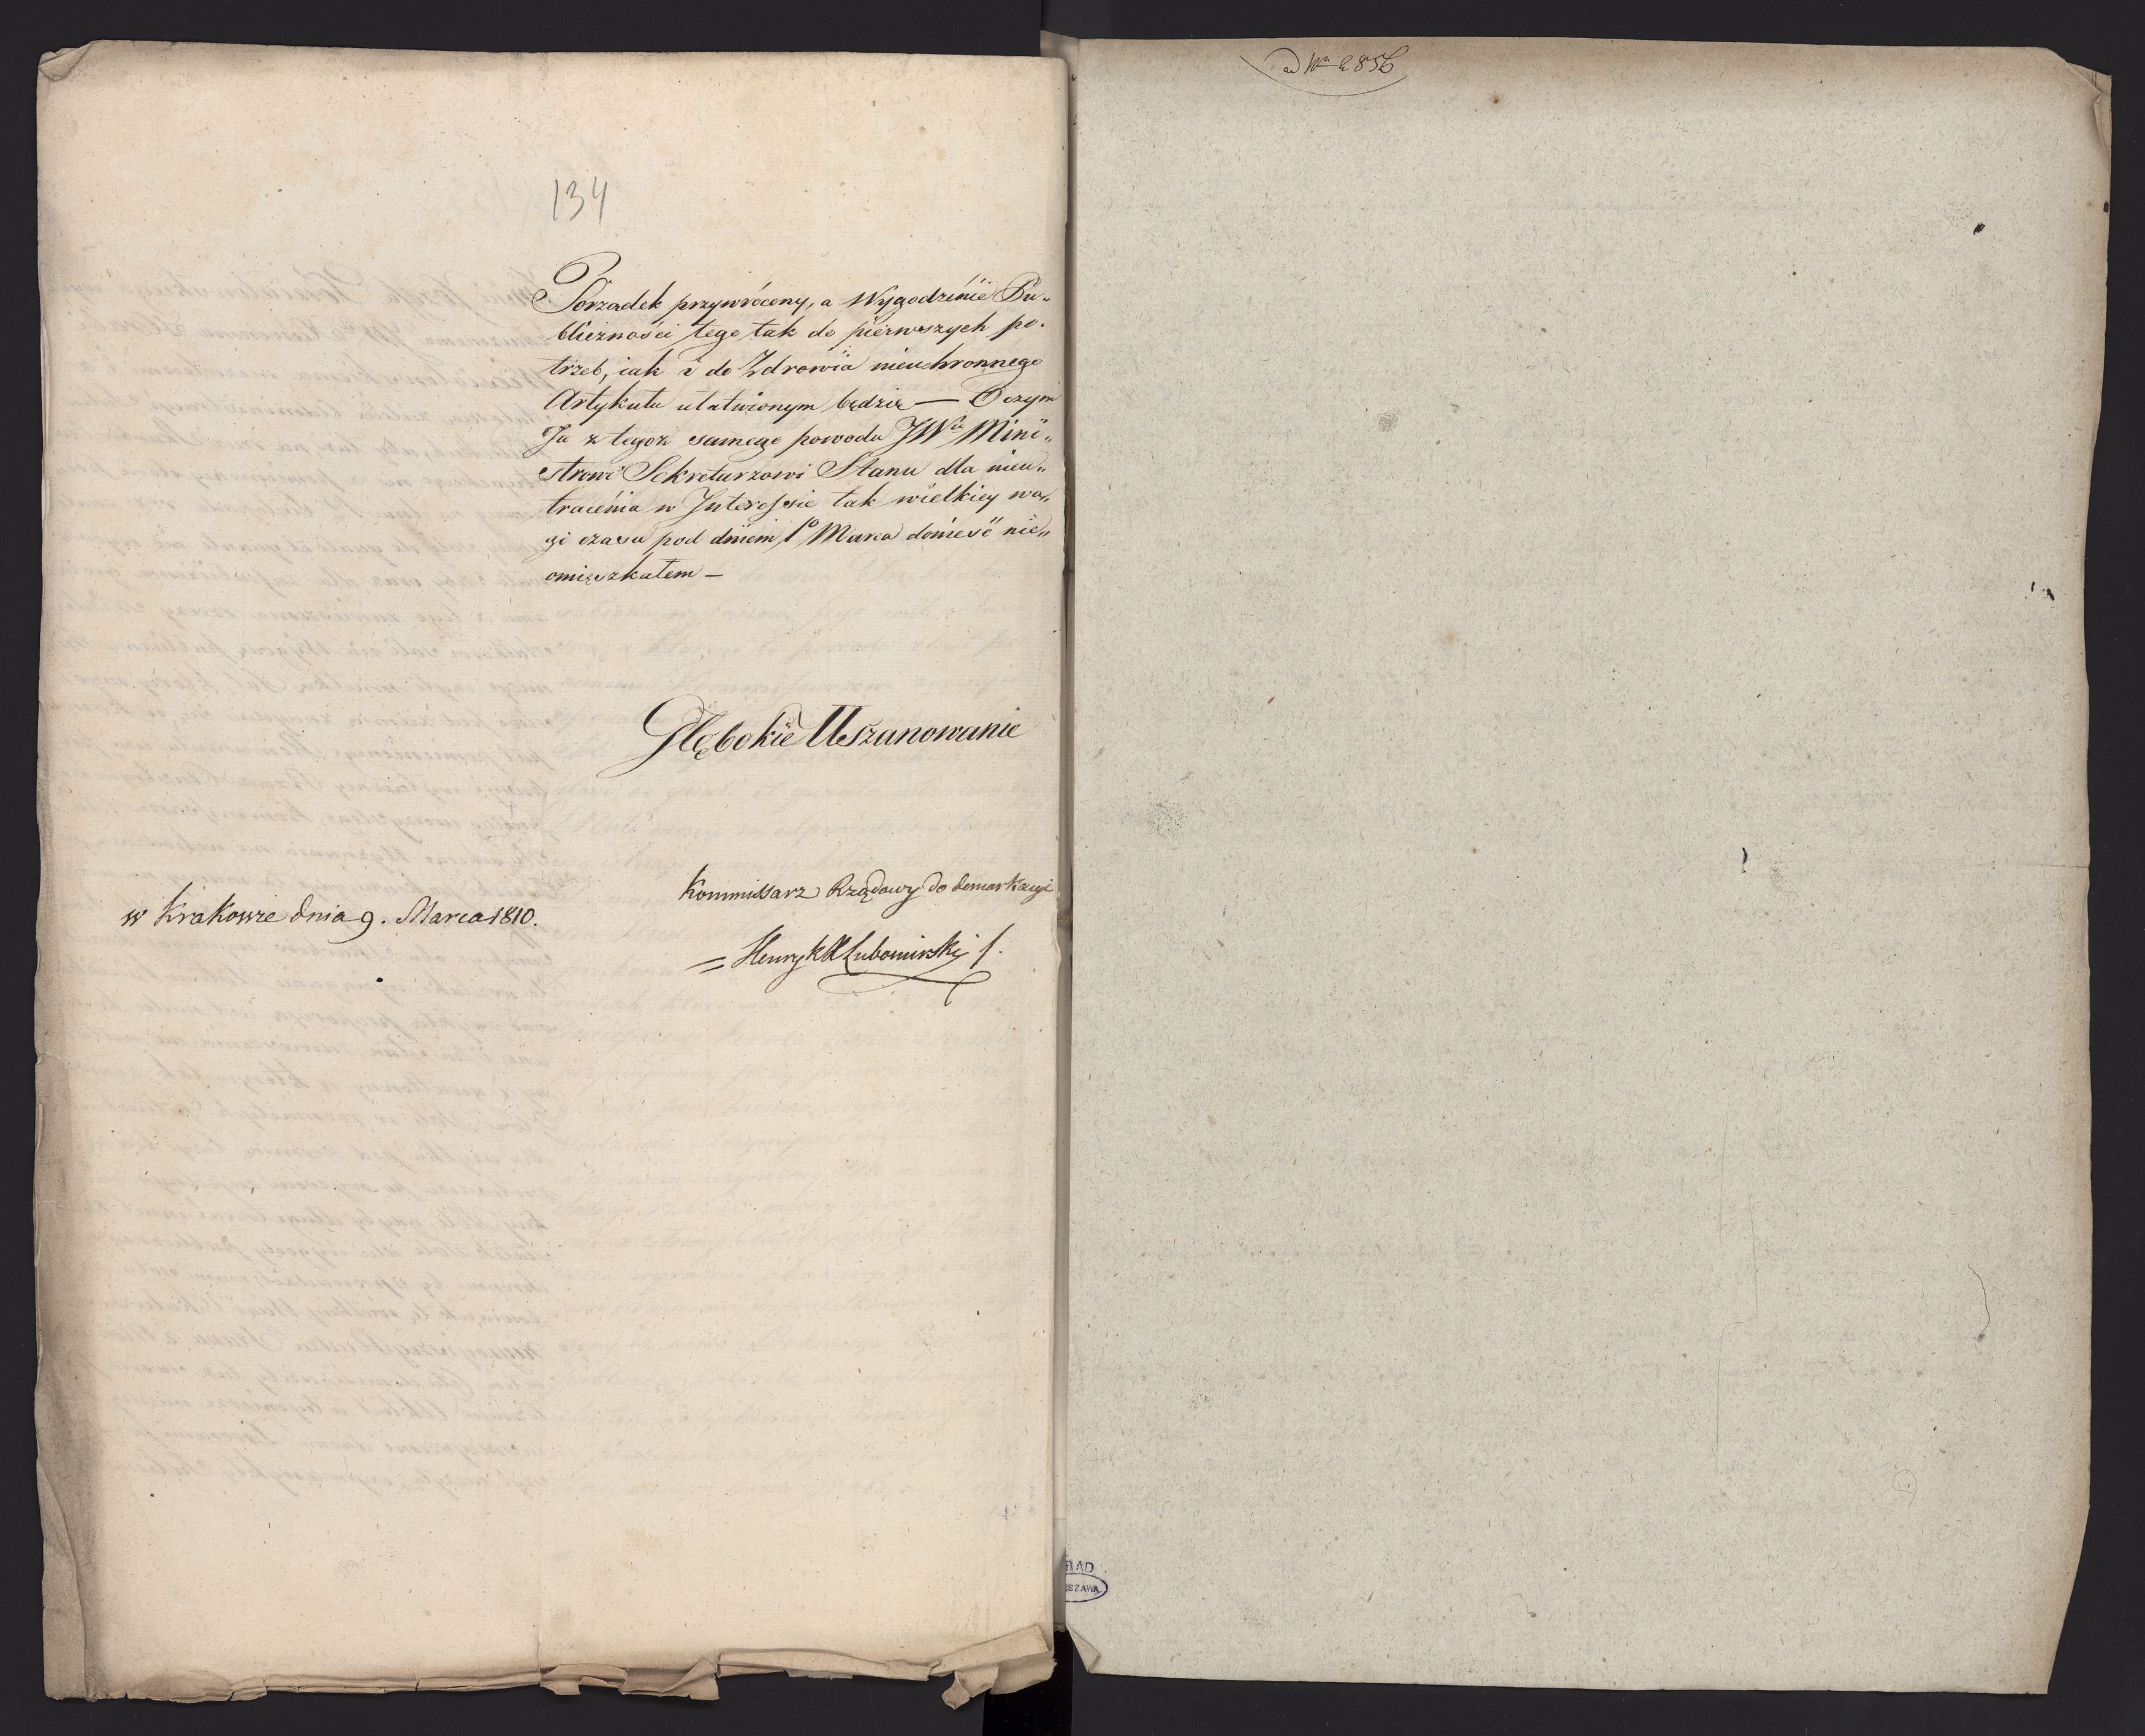 134
Porzadek przywrócony, a Wygodzinie Pu„
bliczności tego tak do pierwszych po„
trzeb, iak i do Zdrowia nieuchronnego
Artykułu ułatwionym będzie — O czym
Ja z tegoż samego powodu JW^u Mini„
strowi Sekretarzowi Stanu dla nieu„
tracenia w Interessie tak wielkiey wa„
gi czasu pod dniem 1° Marca donieść nie„
omięszkałem —
Głębokie Uszanowanie
Kommissarz Rządowy do demarkacyi
w Krakowie dnia 9. Marca 1810.
= Henryk X Lubomirski /.
ad Nm 2856
RAD
SZAWA